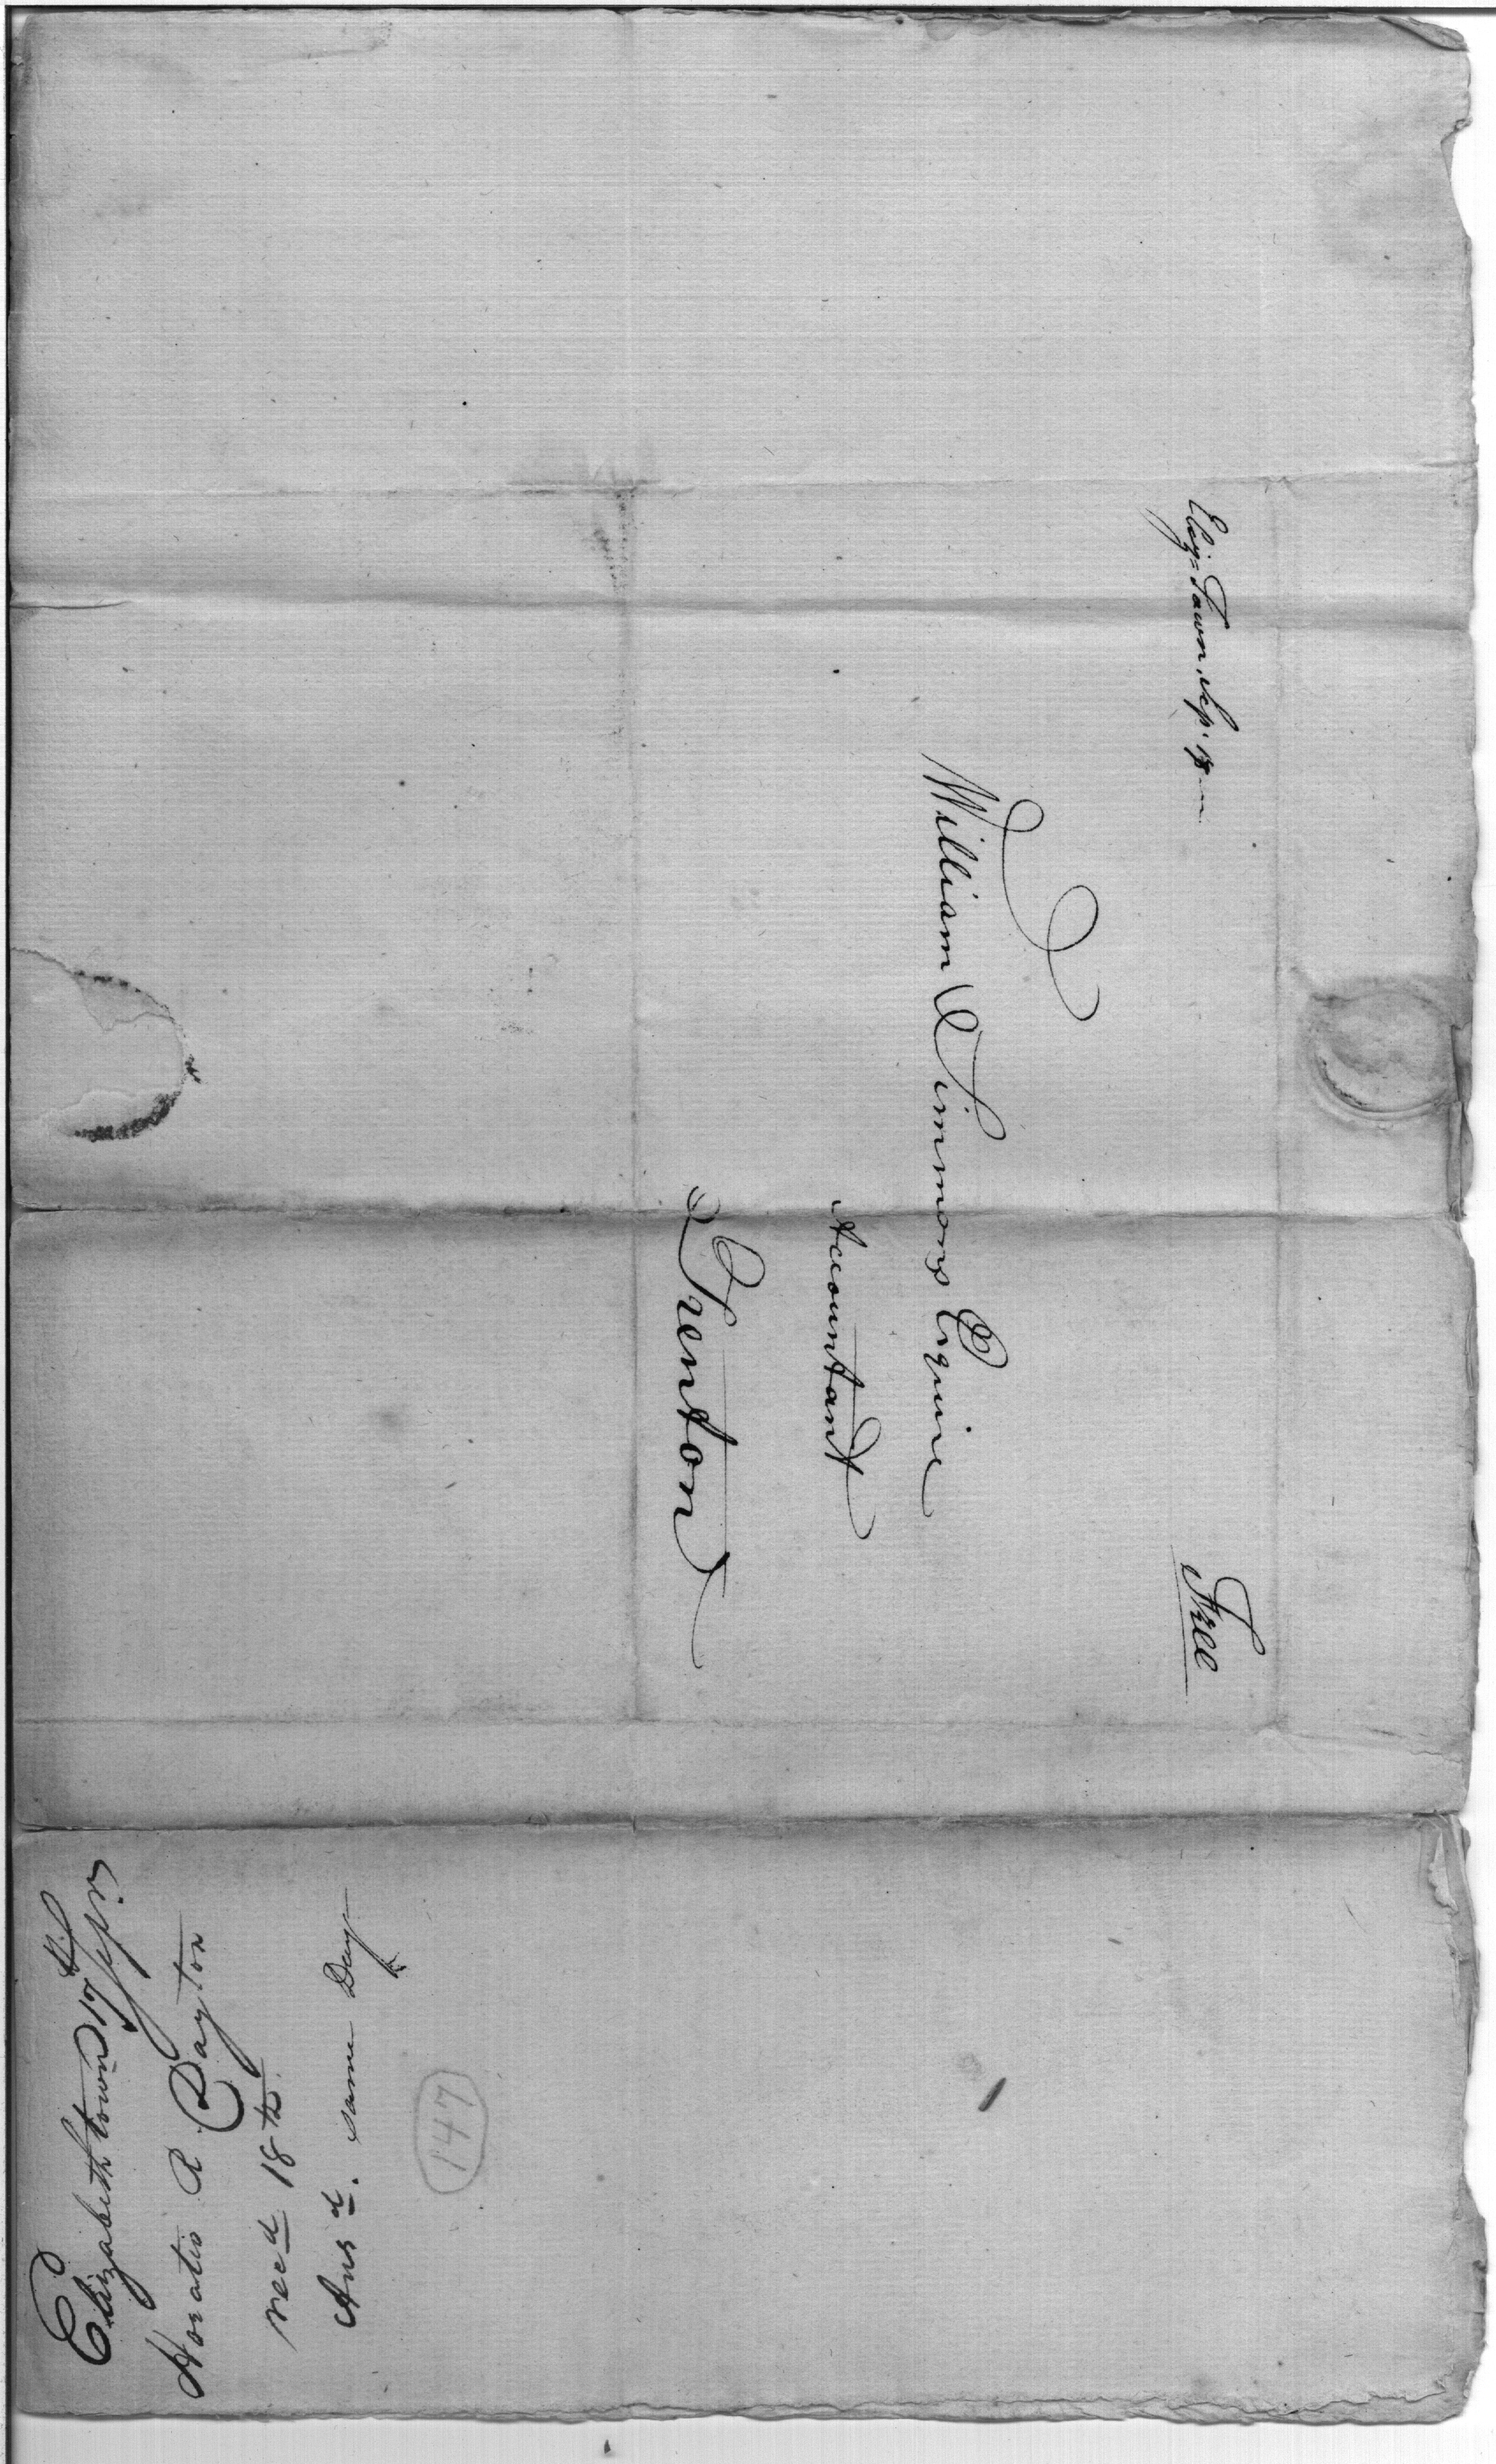 Eliz-Town, Sep. 18
Free
William Simmons Esquire
Accountant
Trenton
Elizabeth town 17th Sepr.
Horatio R Dayton
recd 18th
Ansd. same Day
147